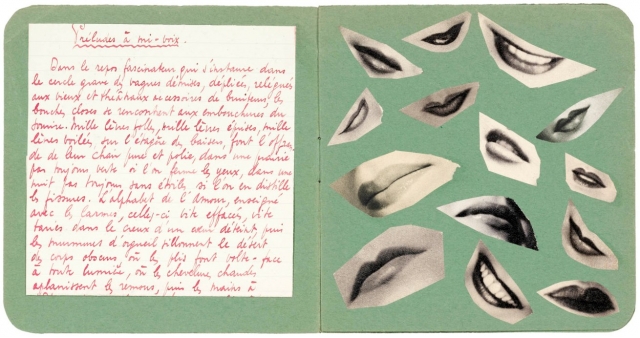 Préludes à mi-voix.
Dans le repos fascinateur qui s'instaure dans
le cercle grave des vagues détruites, dépliées, reléguées
aux vieux et théâtraux accessoires de les
bouches closes se rencontrent aux embouchures du
sourire. Mille lèvres folles, mille lèvres éprises, mille
lèvres voilées, sur l'étagère du baiser, font l'offran
de de leur chair pure et polie, dans une prairie
pas toujours verte si l'on ferme les yeux, dans une
nuit pas toujours sans étoiles si l'on en distille
les fissures. L'alphabet de l'amour, enseigné
avec les larmes, celles-ci vite effacées, vite
taries dans le creux d'un cœur déteint puis
les murmures d'orgueil sillonnent le désert
des corps obscurs, où les plis font volte-face
à toute lumière, où les chevelures chaudes
aplanissent les remous, puis les mains à